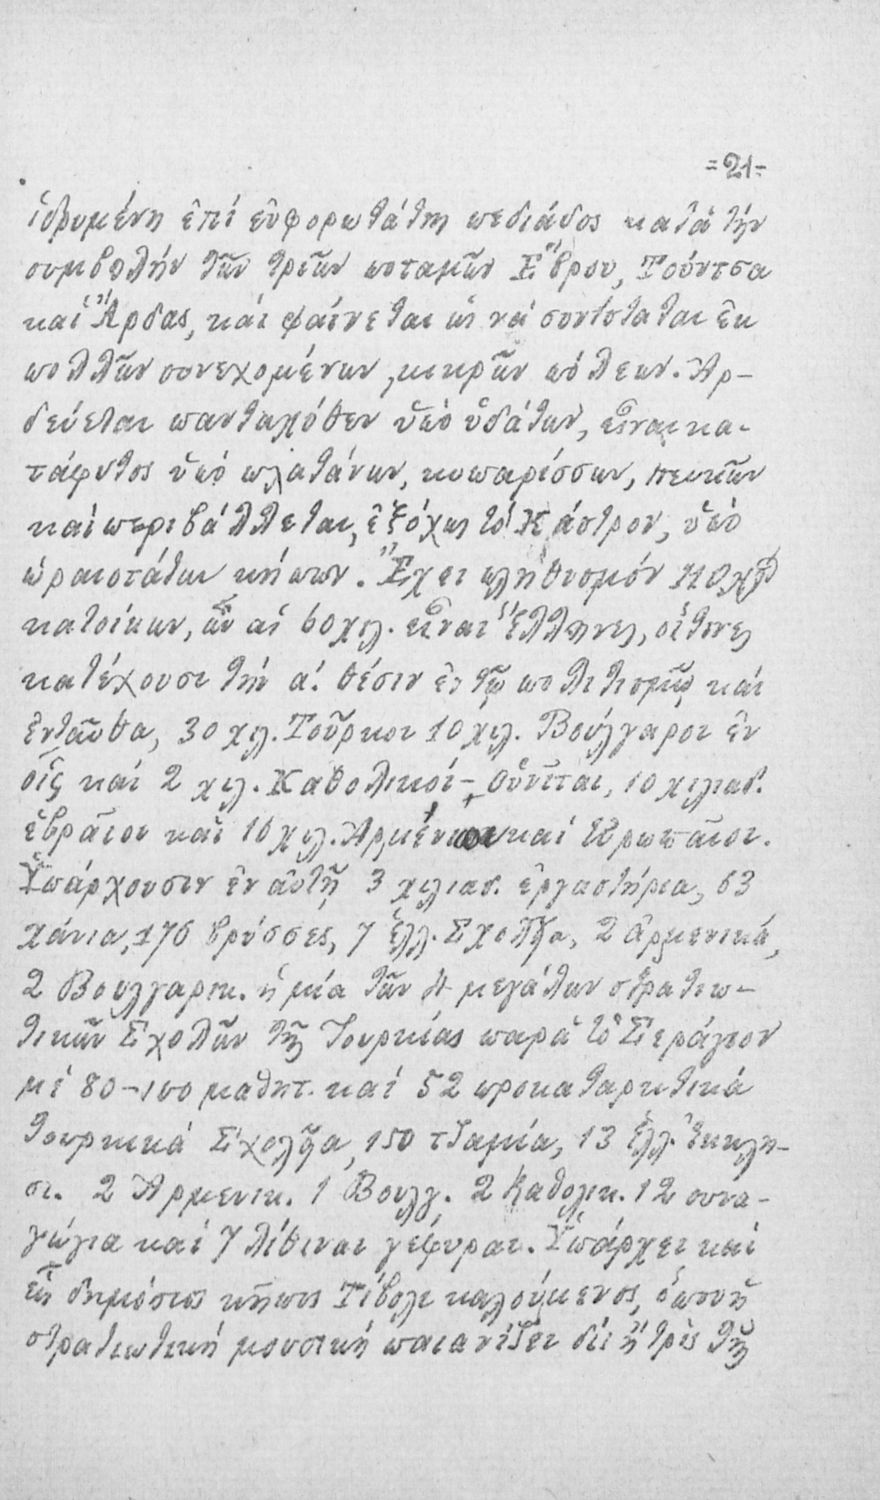 =21=
ἱδρυμένη ἐπί εὐφορωτάτης πεδιάδος κατά τήν
συμβολήν τῶν τριῶν ποταμῶν Ἕβρου, Τούντσα
καί Ἄρδας, καί φαίνεται ὡς νά συνίσταται ἐκ
πολλῶν συνεχομένων μικρῶν πόλεων. Ἀρ-
δεύεται πανταχόθεν ὑπό ὑδάτων, εἶναι κα-
τάφυτος ὑπό πλατάνων, κυπαρίσσων, πευκῶν
καί περιβάλλεται, ἐξόχως τό Κάστρον, ὑπό
ὡραιοτάτων κήπων. Ἔχει πληθυσμόν 110 χιλ
κατοίκων, ὧν αἱ 60 χιλ. εἶναι Ἕλληνες, οἵτινες
κατέχουσι τήν α΄. θέσιν ἐν τῷ πολιτισμῷ καί
ἐνταῦθα, 30 χιλ. Τοῦρκοι 10 χιλ. Βούλγαροι ἐν
οἷς καί 2 χιλ. Καθολικοί - Οὐνῖται, 10 χιλιαδ.
ἑβραῖοι καί 10 χιλ. Ἀρμένιοι καί Εὐρωπαῖοι.
Ὑπάρχουσιν ἐν αὐτῇ 3 χιλιαδ. ἐργαστήρια, 63
χάνια, 176 βρύσσες, 7 ἑλλ. Σχολεῖα, 2 ἀρμενικά,
2 Βουλγαρικ. ἡ μία τῶν 4 μεγάλων στρατιω-
τικῶν Σχολῶν τῆς Τουρκίας παρά τό Σεράγιον
μέ 80-100 μαθητ. καί 52 προκαταρκτικά
τουρκικά Σχολεῖα, 150 τζαμία, 13 ἑλλ. Ἐκκλη-
σι. 2 Ἀρμενικ. 1 Βουλγ. 2 Καθολικ. 12 συνα-
γώγια καί 7 λίθιναι γέφυραι. Ὑπάρχει καί
εἷς δημόσιος κῆπος Τίβολι καλούμενος, ὅπου ἡ
στρατιωτική μουσική παιανίζει δίς ἤ τρίς τῆς